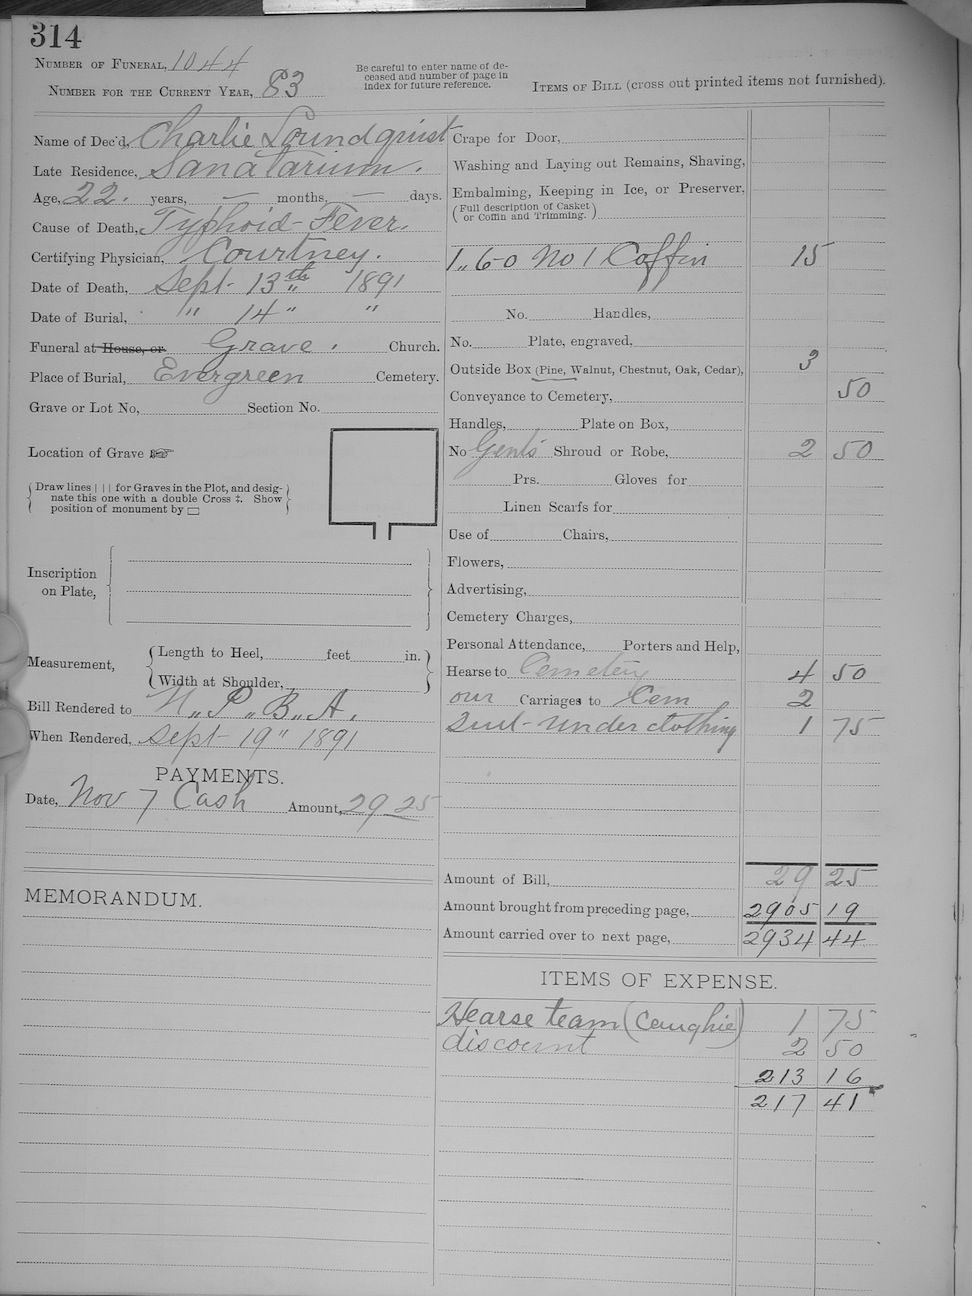 314
NUMBER OF FUNERAL, 1044
NUMBER FOR THE CURRENT YEAR, 83
Be careful to enter name of de-
ceased and number of page in
index for future reference.
ITEMS OF BILL (cross out printed items not furnished).
Name of Dec'd, Charlie Loundquist
Late Residence, Sanatarium.
Age, 22. years, — months, — days.
Cause of Death, Typhoid-Fever.
Certifying Physician, Courtney.
Date of Death, Sept- 13th 1891
Date of Burial, " 14 " "
Funeral at House, or Grave. Church.
Place of Burial, Evergreen Cemetery.
Grave or Lot No, Section No.
Location of Grave ☞
Draw lines | | | for Graves in the Plot, and desig-
nate this one with a double Cross ‡. Show
position of monument by ▭
Inscription
on Plate,
Measurement,
Length to Heel, feet in.
Width at Shoulder,
Bill Rendered to N.,P.,B.,A.
When Rendered, Sept 19" 1891
PAYMENTS.
Date, Nov 7 Cash Amount, 29.25
MEMORANDUM.
Crape for Door,
Washing and Laying out Remains, Shaving,
Embalming, Keeping in Ice, or Preserver,
(Full description of Casket
or Coffin and Trimming.)
1,,60 No 1 Coffin 15
No. Handles,
No. Plate, engraved,
Outside Box (Pine, Walnut, Chestnut, Oak, Cedar), 3
Conveyance to Cemetery, 50
Handles, Plate on Box,
No Gents Shroud or Robe, 2 50
Prs. Gloves for
Linen Scarfs for
Use of Chairs,
Flowers,
Advertising,
Cemetery Charges,
Personal Attendance, Porters and Help,
Hearse to Cemetery 4 50
our Carriages to Cem 2
Suit-underclothing 1 75
Amount of Bill, 29 25
Amount brought from preceding page, 2905 19
Amount carried over to next page, 2934 44
ITEMS OF EXPENSE.
Hearse team 1 75
discount 2 50
213 16
217 41